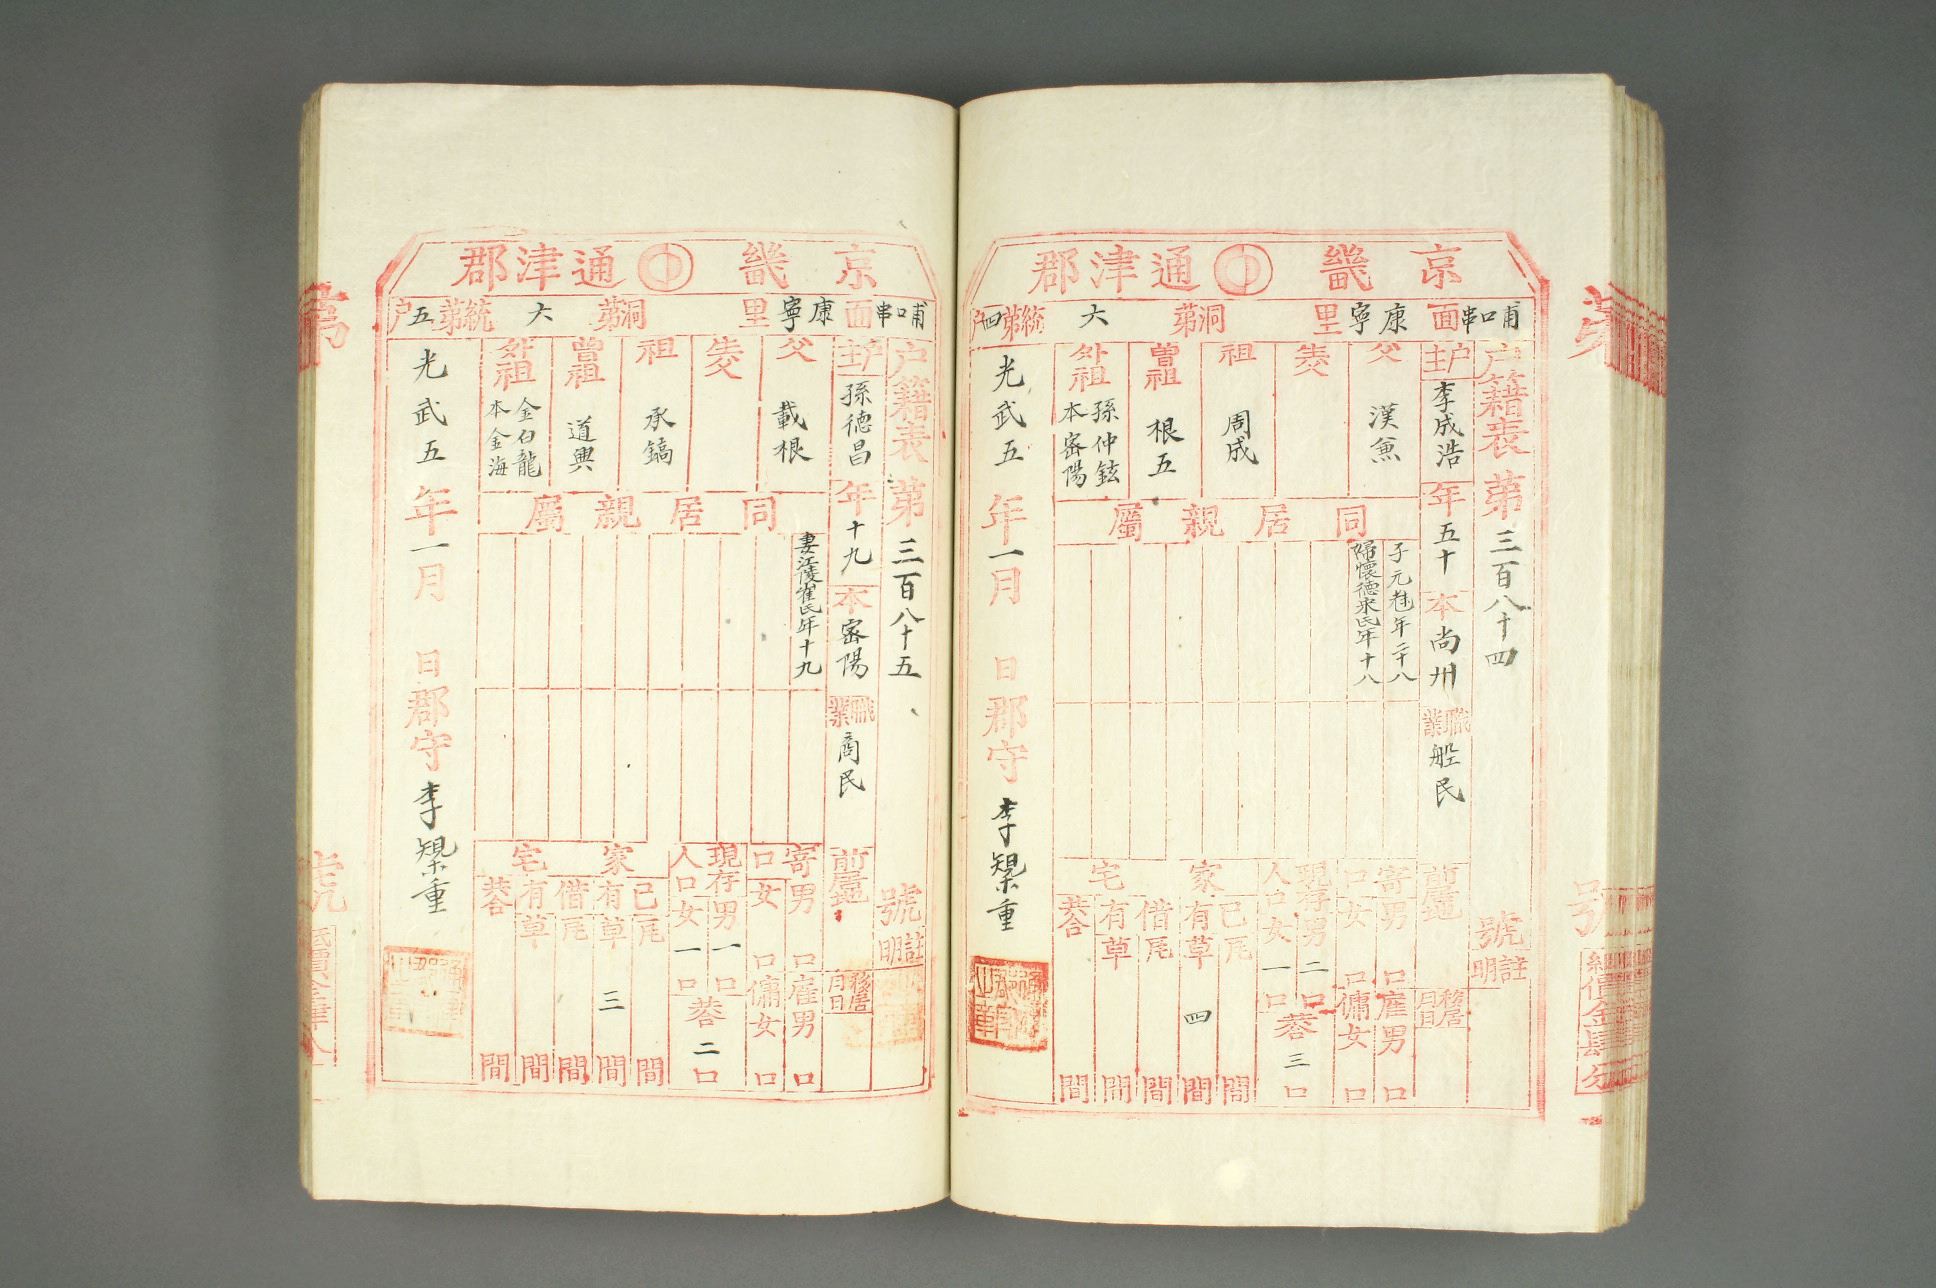 京畿 通津郡
甫口串面 康寧里 洞第 六 統第 四 户
户籍表 第 三百八十四 號
註明
户主 李成浩 年 五十 本 尚州 職業 船民 前居地
移居月日
父 漢兼
生父
祖 周成
曾祖 根五
外祖 孫仲鉉 本密陽
同居親屬
子元春年二十八
婦懷德宋氏年十八
寄口 男 口 女 口
雇男 口 傭女 口
現存人口 男 二 口 女 一 口
共 三 口
家宅
己有 瓦 間 草 四 間
借有 瓦 間 草 間
共 間
光武五年一月 日 郡守 李
重
京畿 通津郡
甫口串面 康寧里 洞第 六 統第 五 户
户籍表 第 三百八十五 號
註明
户主 孫德昌 年 十九 本 密陽 職業 商民 前居地
移居月日
父 載根
生父
祖 承鎬
曾祖 道興
外祖 金白龍 本金海
同居親屬
妻江陵崔氏年十九
寄口 男 口 女 口
雇男 口 傭女 口
現存人口 男 一 口 女 一 口
共 二 口
家宅
己有 瓦 間 草 三 間
借有 瓦 間 草 間
共 間
光武五年一月 日 郡守 李
重